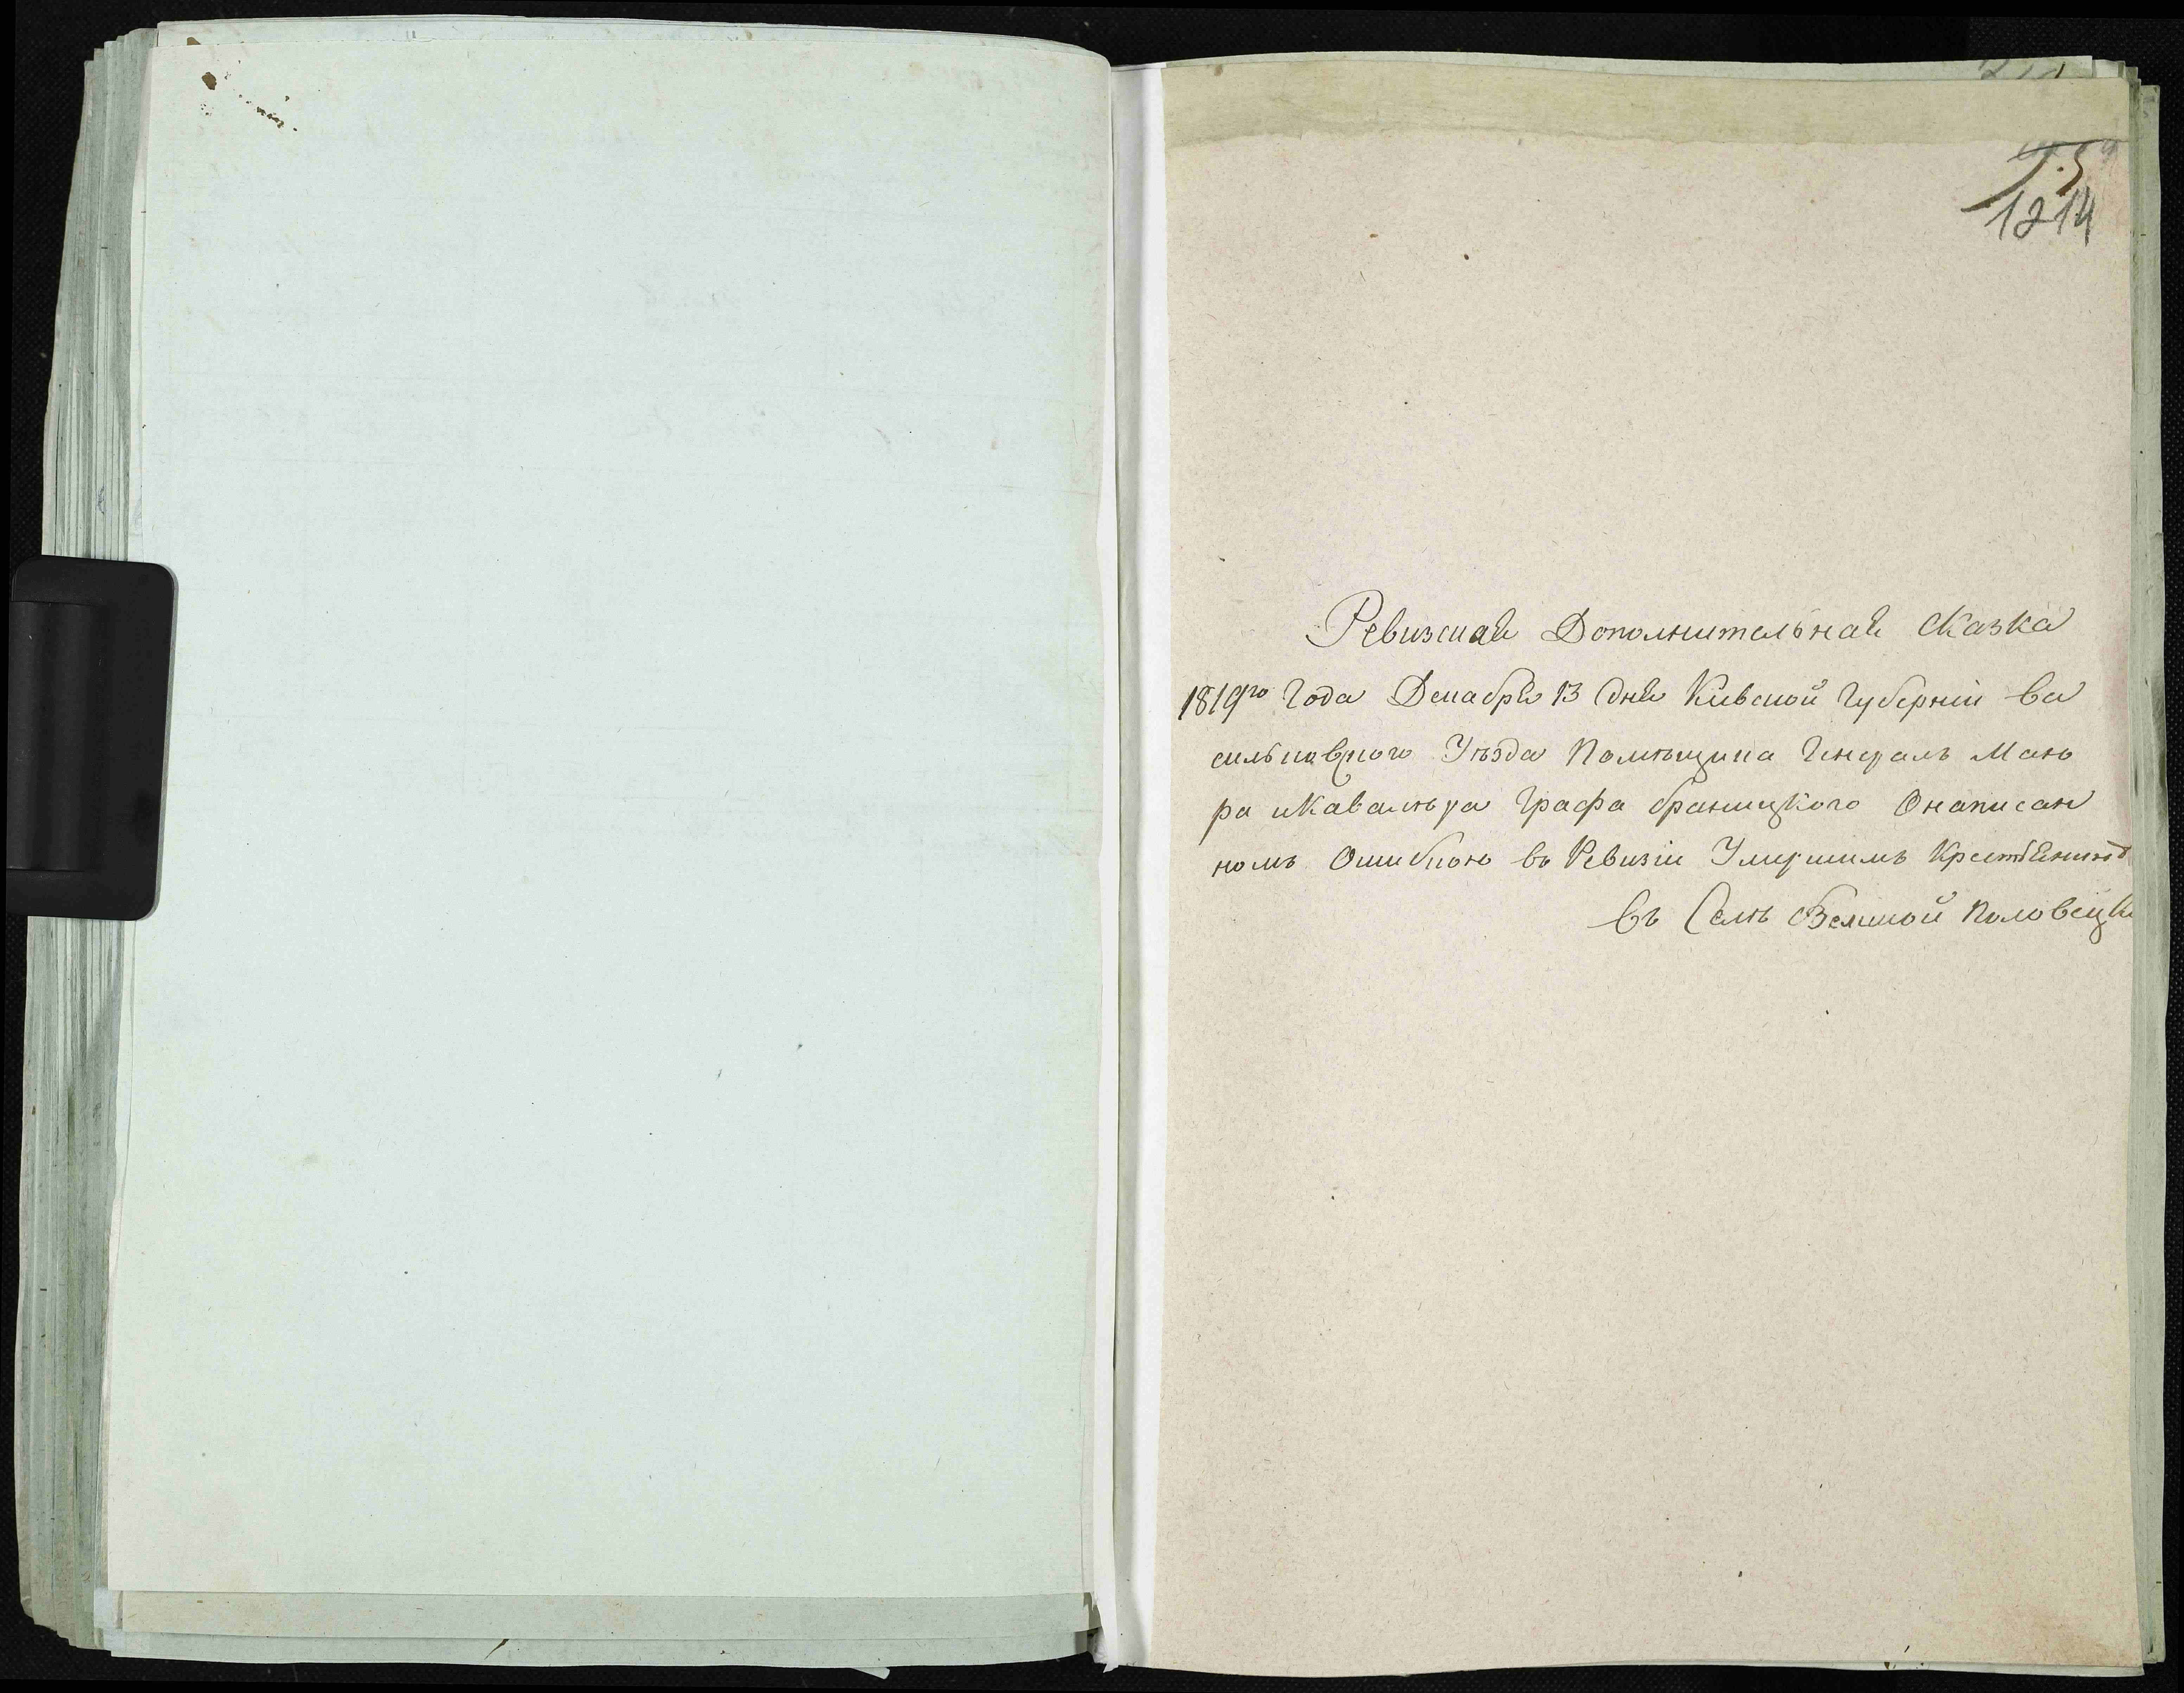 1214
Ревизская Дополнительная Сказка
1819го Года Декабря 13 дня Киевской Губерніи Ва
сильковского Уѣзда Помѣщика Генералъ Маіо
ра и Кавалѣра Графа Браницкого О написан
номъ Ошибкою въ Ревизіи Умершимъ Крестьянинѣ
въ Селѣ Великой Половецк